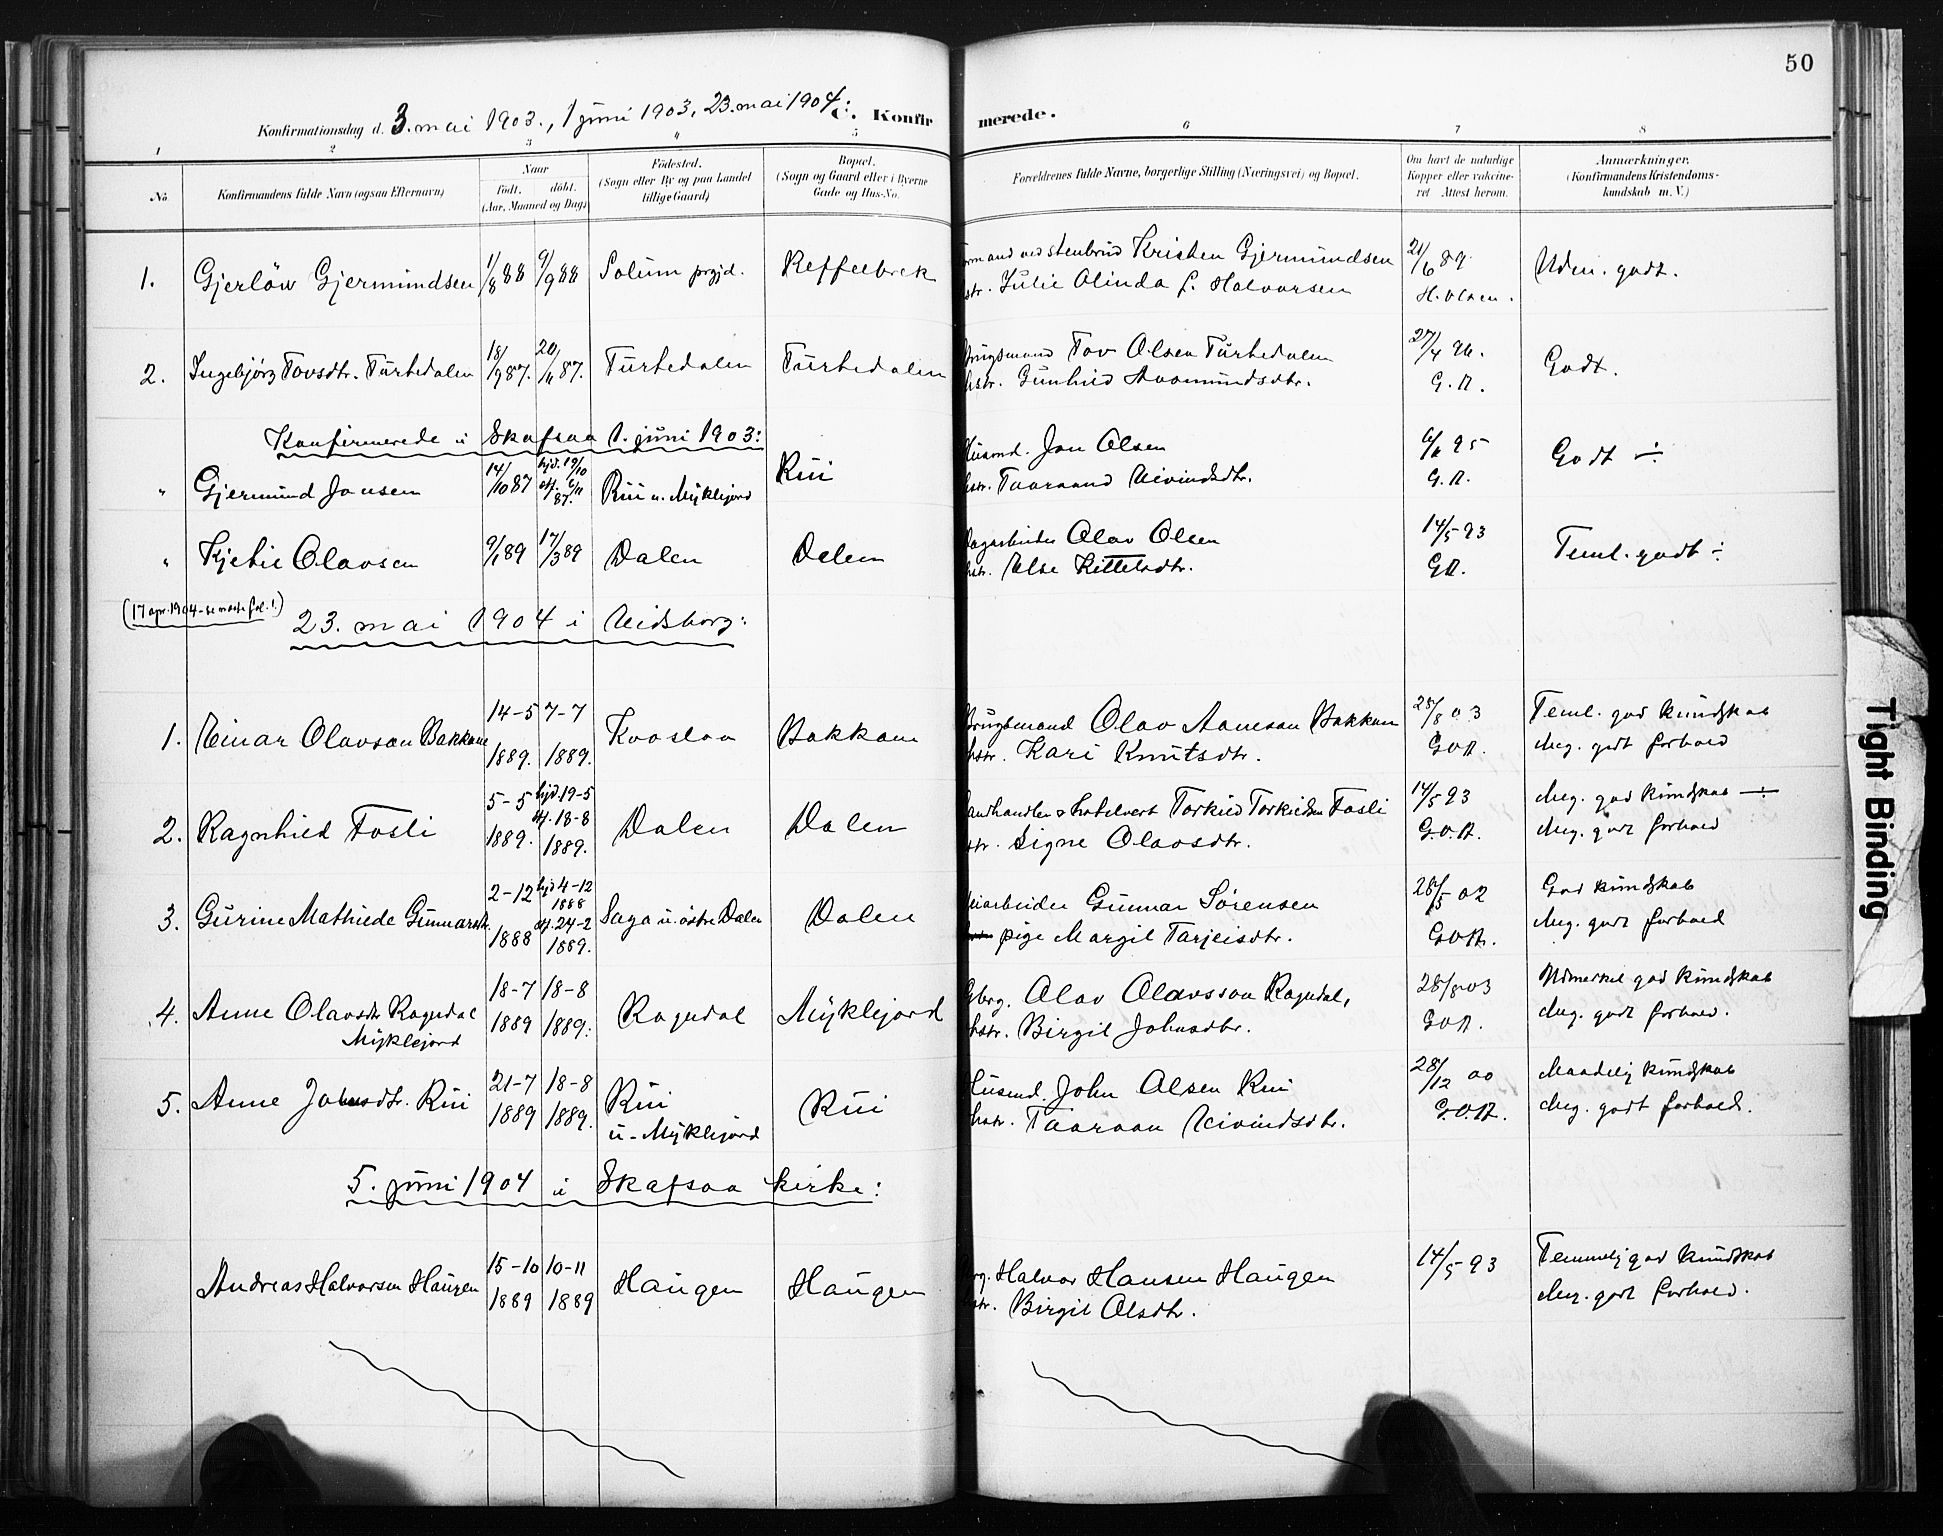 50
Konfirmationsdag d. 3. mai 1903., 1 juni 1903, 23. mai 1904:
C. Konfirmerede.
1 2 3 4 5 6 7 8
No. Konfirmandens fulde Navn (ogsaa Efternavn) Naar født. døbt. (Aar, Maaned og Dag) Fødested. (Sogn eller By og paa Landet tillige Gaard) Bopæl. (Sogn og Gaard eller i Byerne Gade og Hus-No. Forældrenes fulde Navne, borgerlige Stilling (Næringsvei) og Bopæl. Om havt de naturlige Kopper eller vaccineret Attest herom. Anmærkninger. (Konfirmandens Kristendomskundskab m. V.)
1. Gjerløw Gjermundsen 1/8 88 9/9 88 Solum prgjd. Kristen Gjermundsen 21/6 89 Uden. godt.
Julie Olinda f. Halvorsen H. Olsen.
2. Ingebjørg Tovsdtr. Turtedalen 18/9 87. 20/11 87. Turtedalen Turtedalen Tov Olsen Turtedalen 27/4 96. Godt.
Gunhild Aasmundsdtr. G. A.
Konfirmerede i Skafsaa 1. juni 1903:
" Gjermund Jonsen 14/10 87 hjd. 19/10 stf. 6/11 87. Rui u. Myklejord Rui Husmd. Jon Olsen 6/6 95 Godt ÷
Taaraand Eivindsdtr. G. A.
" Kjetil Olavsen 9/1 89 17/3 89 Dalen Dalen Olav Olsen 14/5 93 Teml. godt ÷
Else Kittelsdtr. GA.
(17 apr. 1904 - se næste fol. 1.)
23. mai 1904 i Eidsborg:
1. Einar Olavson Bakkane 14-5 1889. 7-7 1889. Bakkane Brugsmand Olav Bakkane 28/8 03 Teml. god kundskab
hstr. Kari Knutsdtr. GOA. Meg. godt forhold
2. Ragnhild Fosli 5-5 1889. hjd. 19-5 stf. 18-8 1889. Dalen Dalen Landhandler & hotelvert Torkild Torkildsen Fosli 14/5 93 Meg. god kundskab ÷
Signe Olavsdtr. G.O.A. Meg. godt forhold
3. Gurine Mathilde Gunnarsdtr. 2-12 1888 hjd 4-12 1888 stf. 24-2 1889. Saga u. østre Dalen Dalen Gunnar Sørensen 28/5 02 God kundskab
pige Margit Tarjeisdtr. GOA. Meg. godt forhold
4. Anne Olavsdtr. Ragndal Myklejord 18-7 1889 18-8 1889. Ragndal Myklejord Olav Olavsson Ragndal, 28/8 03 Udmerket god kundskab
hstr. Birgit Johnsdtr. GOA. Meg. godt forhold.
5. Anne Johnsdtr. Rui 21-7 1889 18-8 1889. Rui u. Myklejord Rui Husmd. John Olsen Rui 28/12 00 Maadelig kundskab
hstr. Taaraan Eivindsdtr. G.O.A. Meg. godt forhold.
5. juni 1904 i Skafsaa kirke:
Andreas Halvorsen Haugen 15-10 1889 10-11 1889 Haugen Haugen Halvor Hansen Haugen 14/5 93 Temmelig god kundskab
Birgit Olsdtr. Meg. godt forhold.
Tight Binding